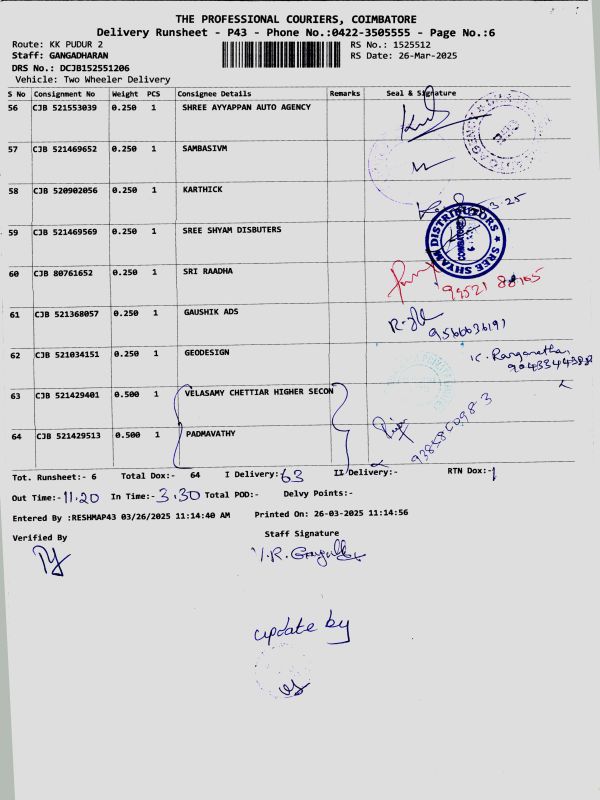 THE PROFESSIONAL COURIERS, COIMBATORE
Delivery Runsheet - P43 - Phone No.:0422-3505555 - Page No.:6
Route: KK PUDUR 2 RS No.: 1525512
Staff: GANGADHARAN RS Date: 26-Mar-2025
DRS No.: DCJB152551206
Vehicle: Two Wheeler Delivery
S No Consignment No Weight PCS Consignee Details Remarks Seal & Signature
56 CJB 521553039 0.250 1 SHREE AYYAPPAN AUTO AGENCY
57 CJB 521469652 0.250 1 SAMBASIVM
58 CJB 520902056 0.250 1 KARTHICK
59 CJB 521469569 0.250 1 SREE SHYAM DISBUTERS
SREE SHYAM DISTRIBUTORS
COIMBATORE
60 CJB 80761652 0.250 1 SRI RAADHA
61 CJB 521368057 0.250 1 GAUSHIK ADS
9566636191
62 CJB 521034151 0.250 1 GEODESIGN
K. Ranganathan
63 CJB 521429401 0.500 1 VELASAMY CHETTIAR HIGHER SECON
64 CJB 521429513 0.500 1 PADMAVATHY
Tot. Runsheet:- 6 Total Dox:- 64 I Delivery: 63 II Delivery:- RTN Dox:-1
Out Time:-11.20 In Time:-3.30 Total POD:- Delvy Points:-
Entered By :RESHMAP43 03/26/2025 11:14:40 AM Printed On: 26-03-2025 11:14:56
Verified By Staff Signature
update by